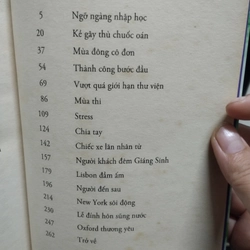 5 Ngỡ ngàng nhập học
20 Kẻ gây thù chuốc oán
37 Mùa đông cô đơn
54 Thành công bước đầu
69 Vượt quá giới hạn thư viện
86 Mùa thi
109 Stress
124 Chia tay
142 Chiếc xe lăn nhân từ
157 Người khách đêm Giáng Sinh
179 Lisbon đầm ấm
196 Người đến sau
214 New York sôi động
240 Lễ đính hôn sũng nước
252 Oxford thương yêu
262 Trở về